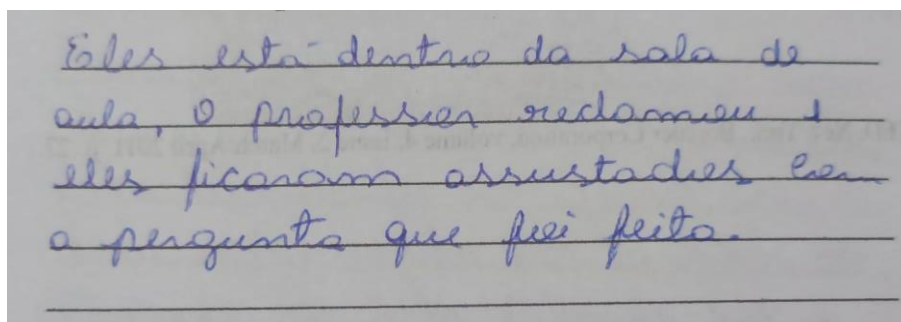 Eles está dentro da sala de
aula, O professor reclamou e
eles ficaram assustados com
a pergunta que foi feita.